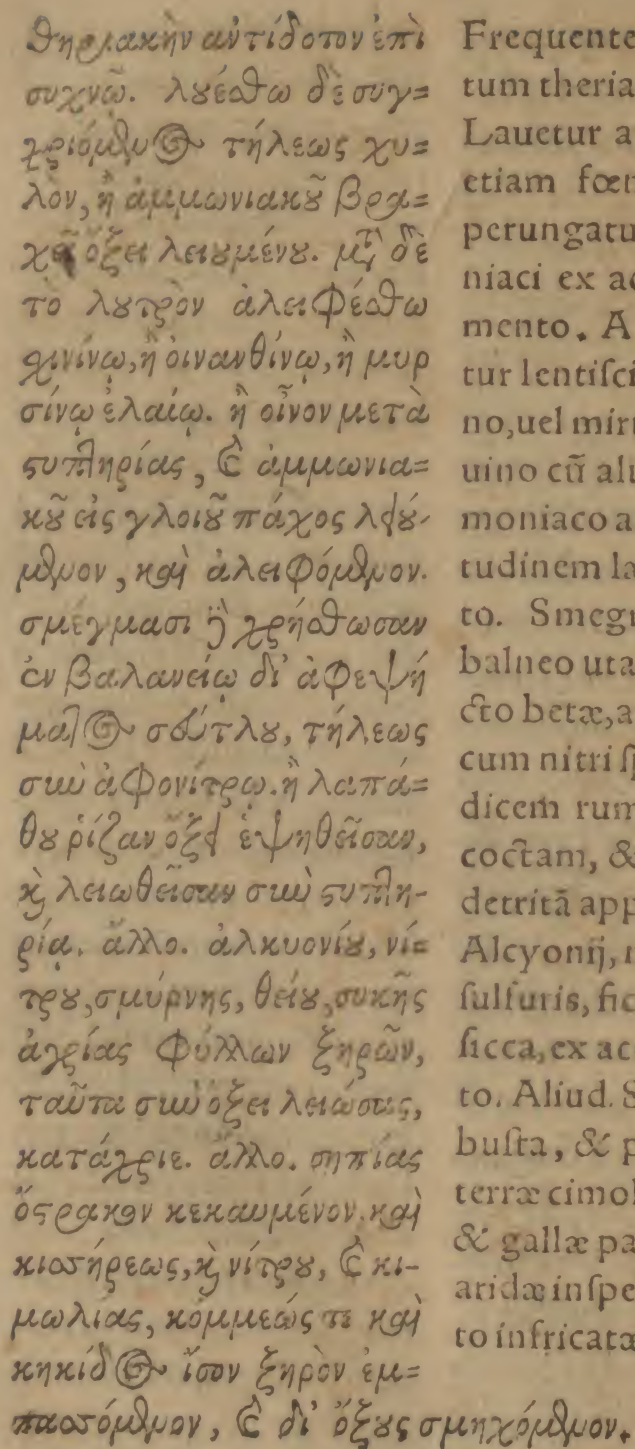 θηριακὴν ἀντίδοτον ἐπὶ
συχνῷ. λουέσθω δὲ συγ=
χριόμενος τήλεως χυ=
λὸν, ἢ ἀμμωνιακοῦ βρα=
χεῖ ὄξει λειουμένου. μετὰ δὲ
τὸ λουτρὸν ἀλειφέσθω
σχινίνῳ, ἢ οἰνανθίνῳ, ἢ μυρ
σίνῳ ἐλαίῳ. ἢ οἶνον μετὰ
στυπτηρίας, καὶ ἀμμωνια=
κοῦ εἰς γλοιοῦ πάχος λειού-
μενον, καὶ ἀλειφόμενον.
σμέγμασι δὲ χρήσθωσαν
ἐν βαλανείῳ δι' ἀφεψή
ματος σεύτλου, τήλεως
σὺν ἀφρονίτρῳ. ἢ λαπά=
θου ῥίζαν ὄξει ἑψηθεῖσαν,
καὶ λειωθεῖσαν σὺν στυπτη-
ρίᾳ. ἄλλο. ἀλκυονίου, νί=
τρου, σμύρνης, θείου, συκῆς
ἀγρίας φύλλων ξηρῶν,
ταῦτα σὺν ὄξει λειώσας,
κατάχριε. ἄλλο. σηπίας
ὄστρακον κεκαυμένον, καὶ
κισσήρεως, καὶ νίτρου, καὶ κι-
μωλίας, κόμμεώς τε καὶ
κηκίδος ἴσον ξηρὸν ἐμ=
πασσόμενον, καὶ δι' ὄξους σμηχόμενον.
Frequente
tum theria
Lauetur a
etiam fœn
perungatu
niaci ex ac
mento. A
tur lentisci
no, uel mir
uino cũ alu
moniaco a
tudinem la
to. Smegm
balneo uta
cto betæ, a
cum nitri sp
dicem rum
coctam, &
detritã app
Alcyonij, n
sulfuris, fic
sicca, ex ac
to. Aliud. S
busta, & p
terræ cimol
& gallæ pa
aridæ inspe
to infricata